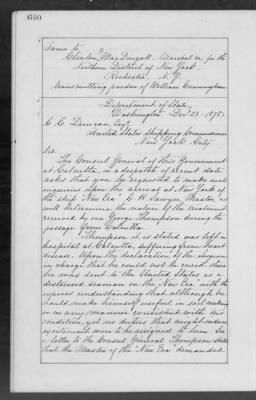 640
Same to
Clinton MacDougall, Marshal &c. for the
Northern District of New York
Rochester N.Y.
transmitting pardon of William Cunningham
Department of State,
Washington Decr 23 1878.
C. C. Duncan, Esqr
United States Shipping Commissioner
New York City
Sir
The Consul General of this Government
at Calcutta, in a despatch of recent date
asks that you be requested to make such
inquiries upon the arrival at New York of
the ship New Era G. W. Sawyer, Master, as
will determine the nature of the treatment
received by one George Thompson during the
passage from Calcutta.
Thompson it is stated was left in
hospital at Calcutta, suffering from heart
disease. Upon the declaration of the surgeon
in charge that he could not be cured there
he was sent to the United States as a
distressed seaman on the New Era with the
express understanding that although he
should make himself useful in sail making
or in any manner consistent with his
condition, yet no duties that might induce
excitement were to be assigned to him. In
a letter to the Consul General Thompson states
that the Master of the New Era demanded